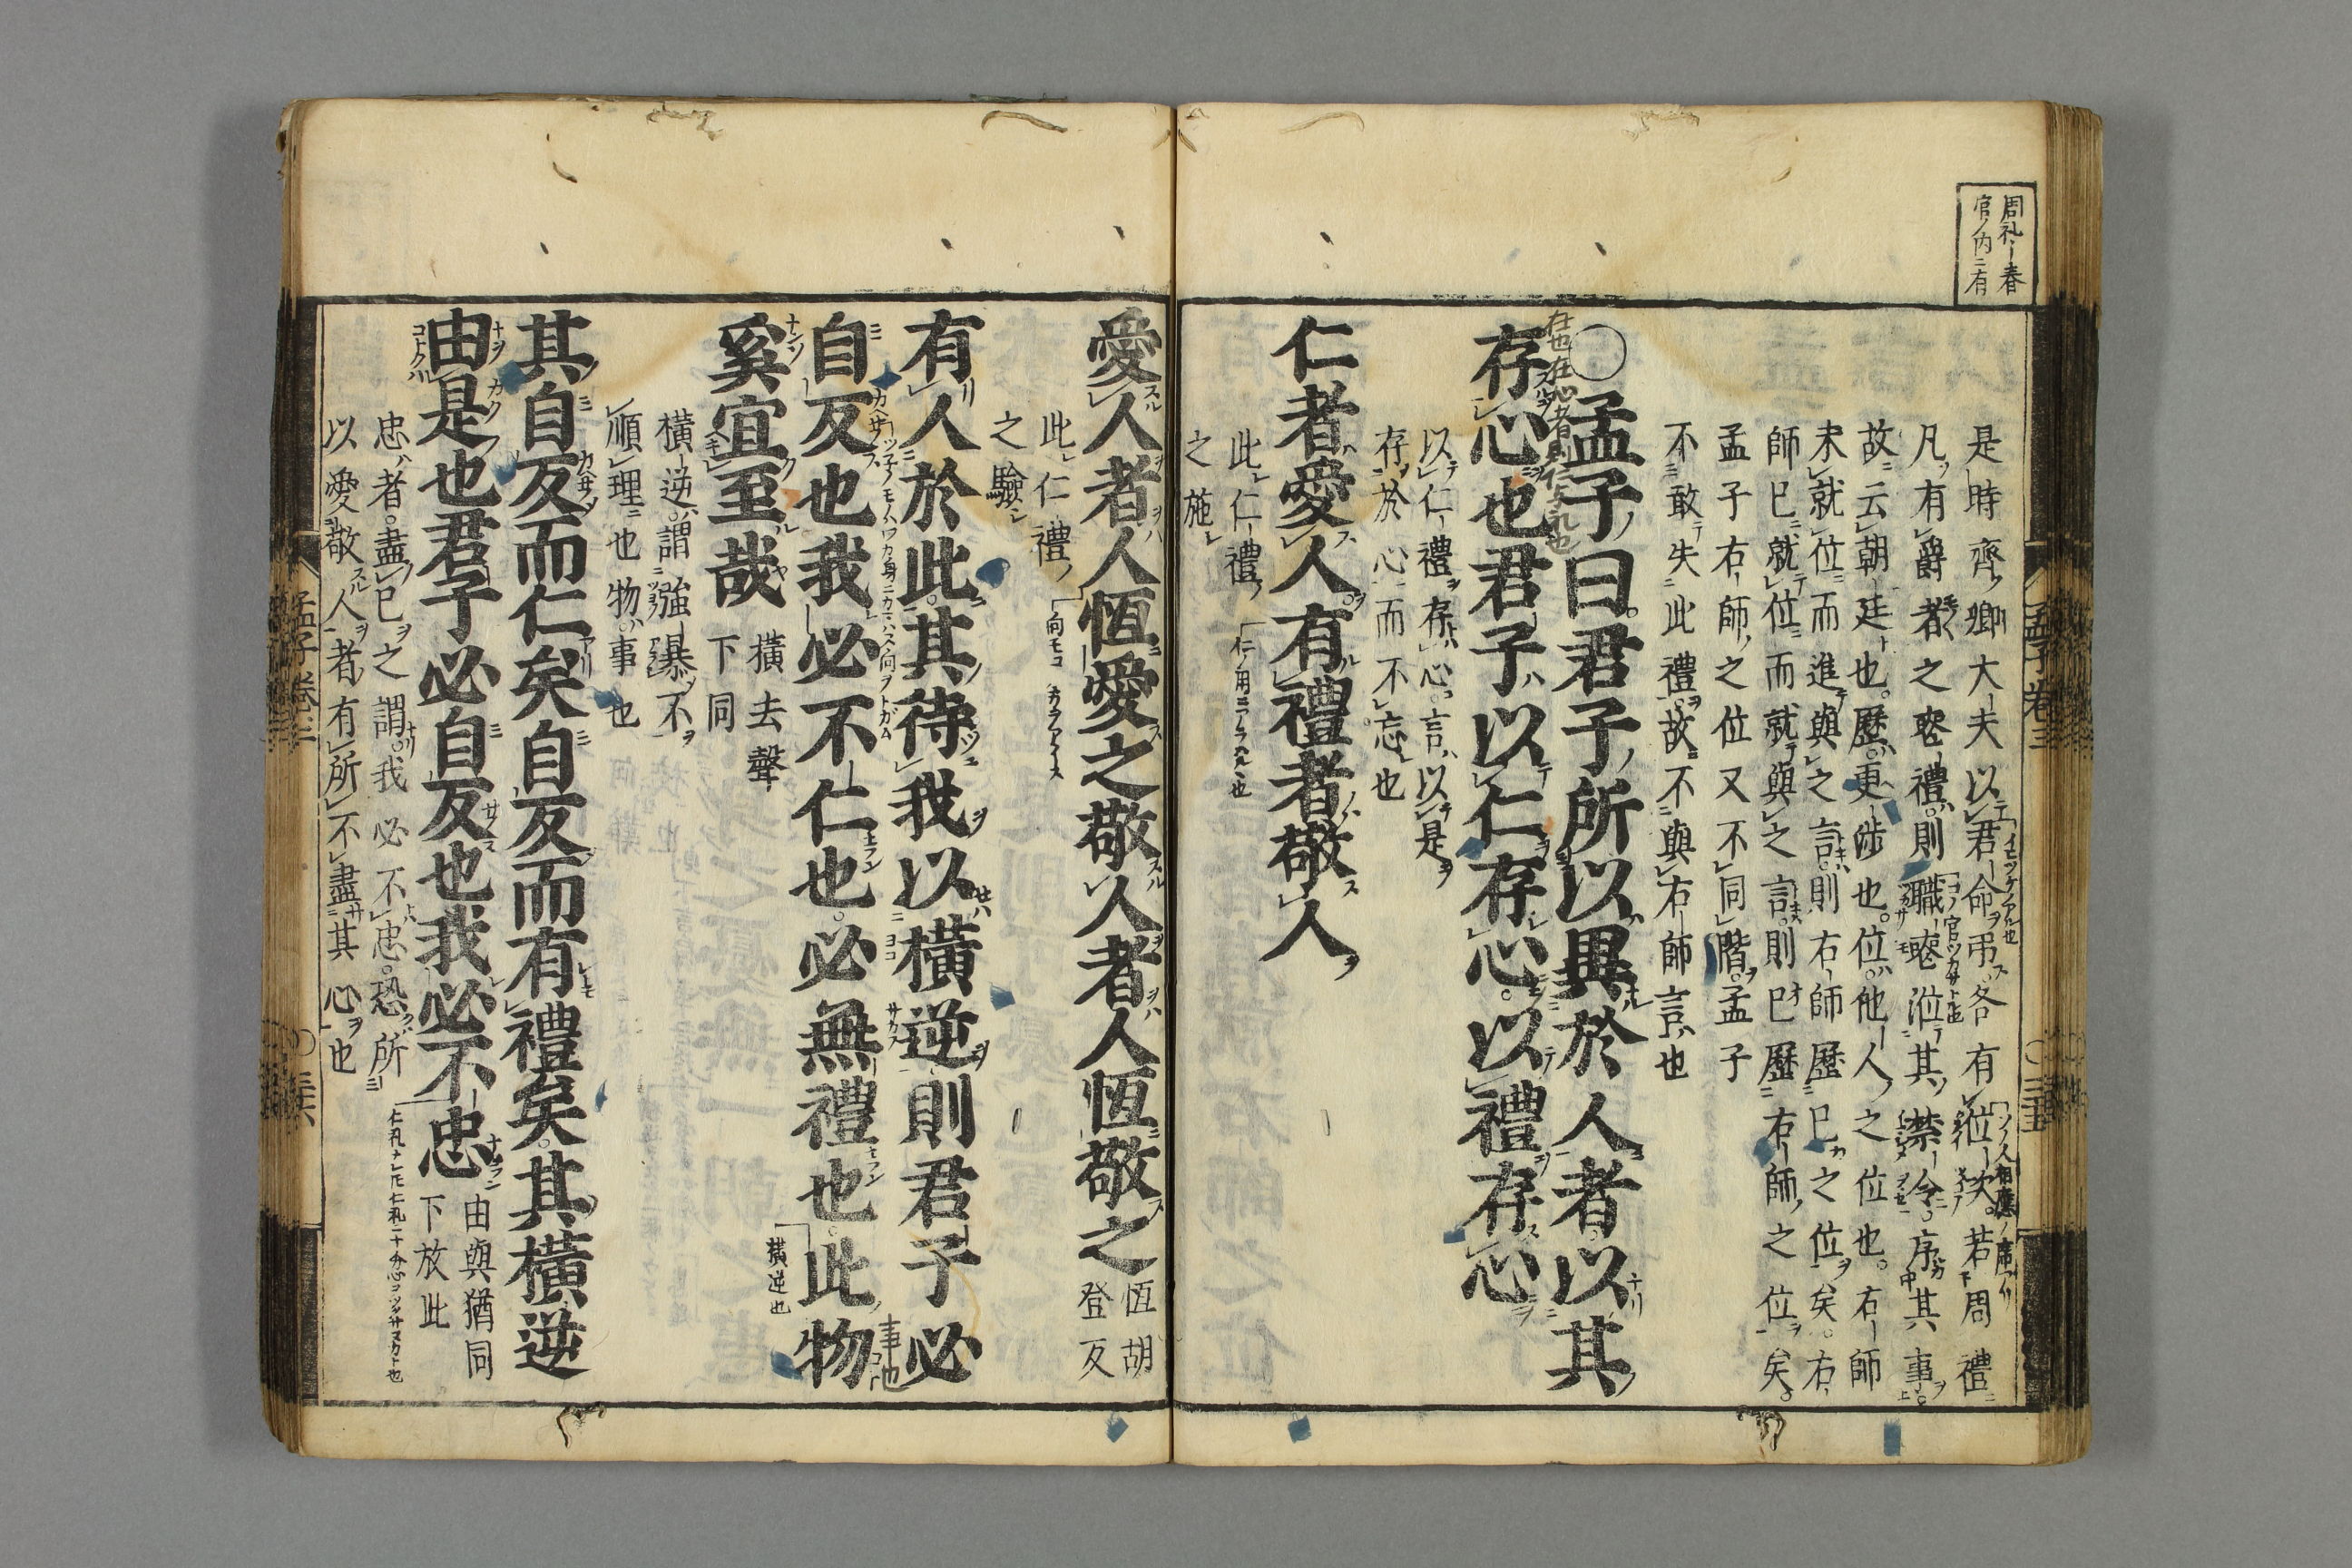 周礼ハ春
官ノ内ニ有
是時齊卿大夫以君命弔各有位次若周禮
凡有爵者之喪禮則職喪涖其禁令序其事
故云朝廷也歷更涉也位他人之位也右師
未就位而進與之言則右師歷已之位矣右
師已就位而就與之言則已歷右師之位矣
孟子右師之位又不同階孟子
不敢失此禮故不與右師言也
○孟子曰君子所以異於人者以其
存心也君子以仁存心以禮存心
以仁禮存心言以是
存於心而不忘也
仁者愛人有禮者敬人
此仁禮
之施
孟子卷三
愛人者人恆愛之敬人者人恆敬之
恆胡
登反
此仁禮
之驗
有人於此其待我以橫逆則君子必
自反也我必不仁也必無禮也此物
奚宜至哉
橫去聲
下同
橫逆謂強暴不
順理也物事也
其自反而仁矣自反而有禮矣其橫逆
由是也君子必自反也我必不忠
由與猶同
下放此
忠者盡已之謂我必不忠恐所
以愛敬人者有所不盡其心也
孟子卷三